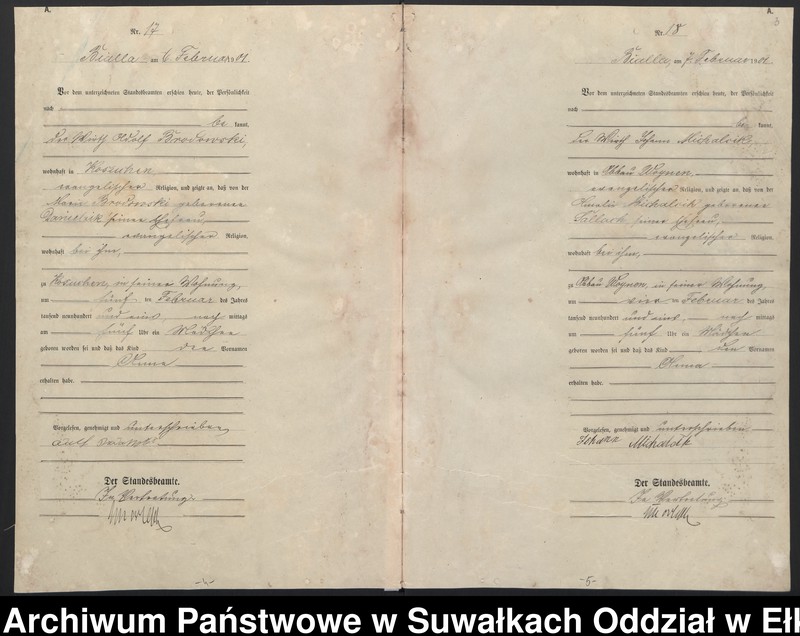 A.
Nr. 17
Bialla am 6 Februar 1901
Vor dem unterzeichneten Standesbeamten erschien heute, der Persönlichkeit
nach
be kannt,
der Wirth Adolf Brodowski,
wohnhaft in Kosuchen
evangelischer Religion, und zeigte an, daß von der
Marie Brodowski geborenen
Danielzik seiner Ehefrau,
evangelischer Religion,
wohnhaft bei ihm,
zu Kosuchen, in seiner Wohnung,
am fünf ten Februar des Jahres
tausend neunhundert und eins nach mittags
um fünf Uhr ein Mädchen
geboren worden sei und daß das Kind den Vornamen
erhalten habe.
Vorgelesen, genehmigt und unterschrieben
Der Standesbeamte.
In Vertretung.
-4-
A.
3
Nr. 18
Bialla, am 7 Februar 1901
Vor dem unterzeichneten Standesbeamten erschien heute, der Persönlichkeit
nach
be kannt,
der Wirth Johann Michalzik,
wohnhaft in Abbau Wognen
evangelischer Religion, und zeigte an, daß von der
Amalie Michalzik geborenen
seiner Ehefrau,
evangelischer Religion,
wohnhaft bei ihm,
zu Abbau Wognen, in seiner Wohnung,
am vier ten Februar des Jahres
tausend neunhundert und eins, nach mittags
um fünf Uhr ein Mädchen
geboren worden sei und daß das Kind den Vornamen
erhalten habe.
Vorgelesen, genehmigt und unterschrieben
Johann Michalzik
Der Standesbeamte.
In Vertretung.
-5-
Archiwum Państwowe w Suwałkach Oddział w Eł